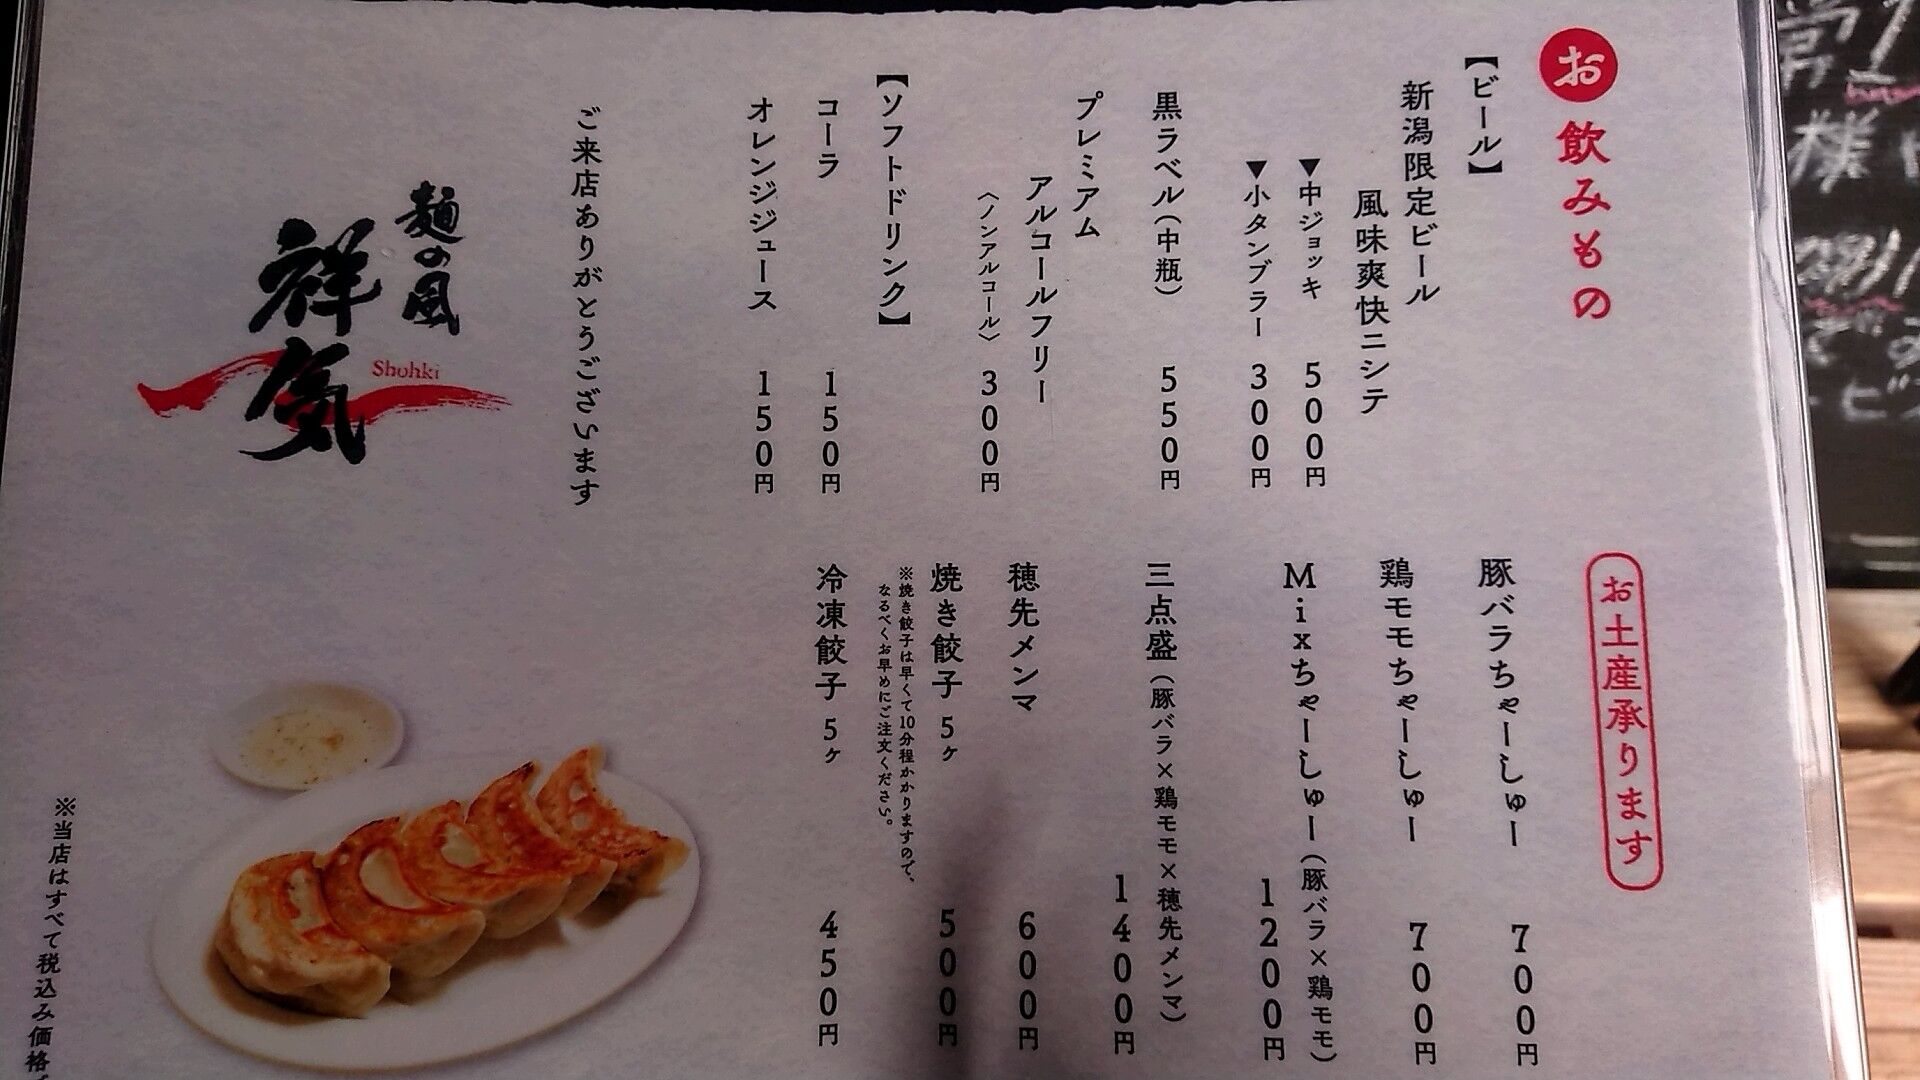 お飲みもの
【ビール】
新潟限定ビール
風味爽快ニシテ
▼中ジョッキ 500円
▼小タンブラー 300円
黒ラベル（中瓶） 550円
プレミアム
アルコールフリー
〈ノンアルコール〉 300円
【ソフトドリンク】
コーラ 150円
オレンジジュース 150円
ご来店ありがとうございます
麺の風
祥気
Shohki
お土産承ります
豚バラちゃーしゅー 700円
鶏モモちゃーしゅー 700円
Mixちゃーしゅー（豚バラ×鶏モモ）
1200円
三点盛（豚バラ×鶏モモ×穂先メンマ）
1400円
穂先メンマ 600円
焼き餃子 5ヶ 500円
※焼き餃子は早くて10分程かかりますので、
なるべくお早めにご注文ください。
冷凍餃子 5ヶ 450円
※当店はすべて税込み価格